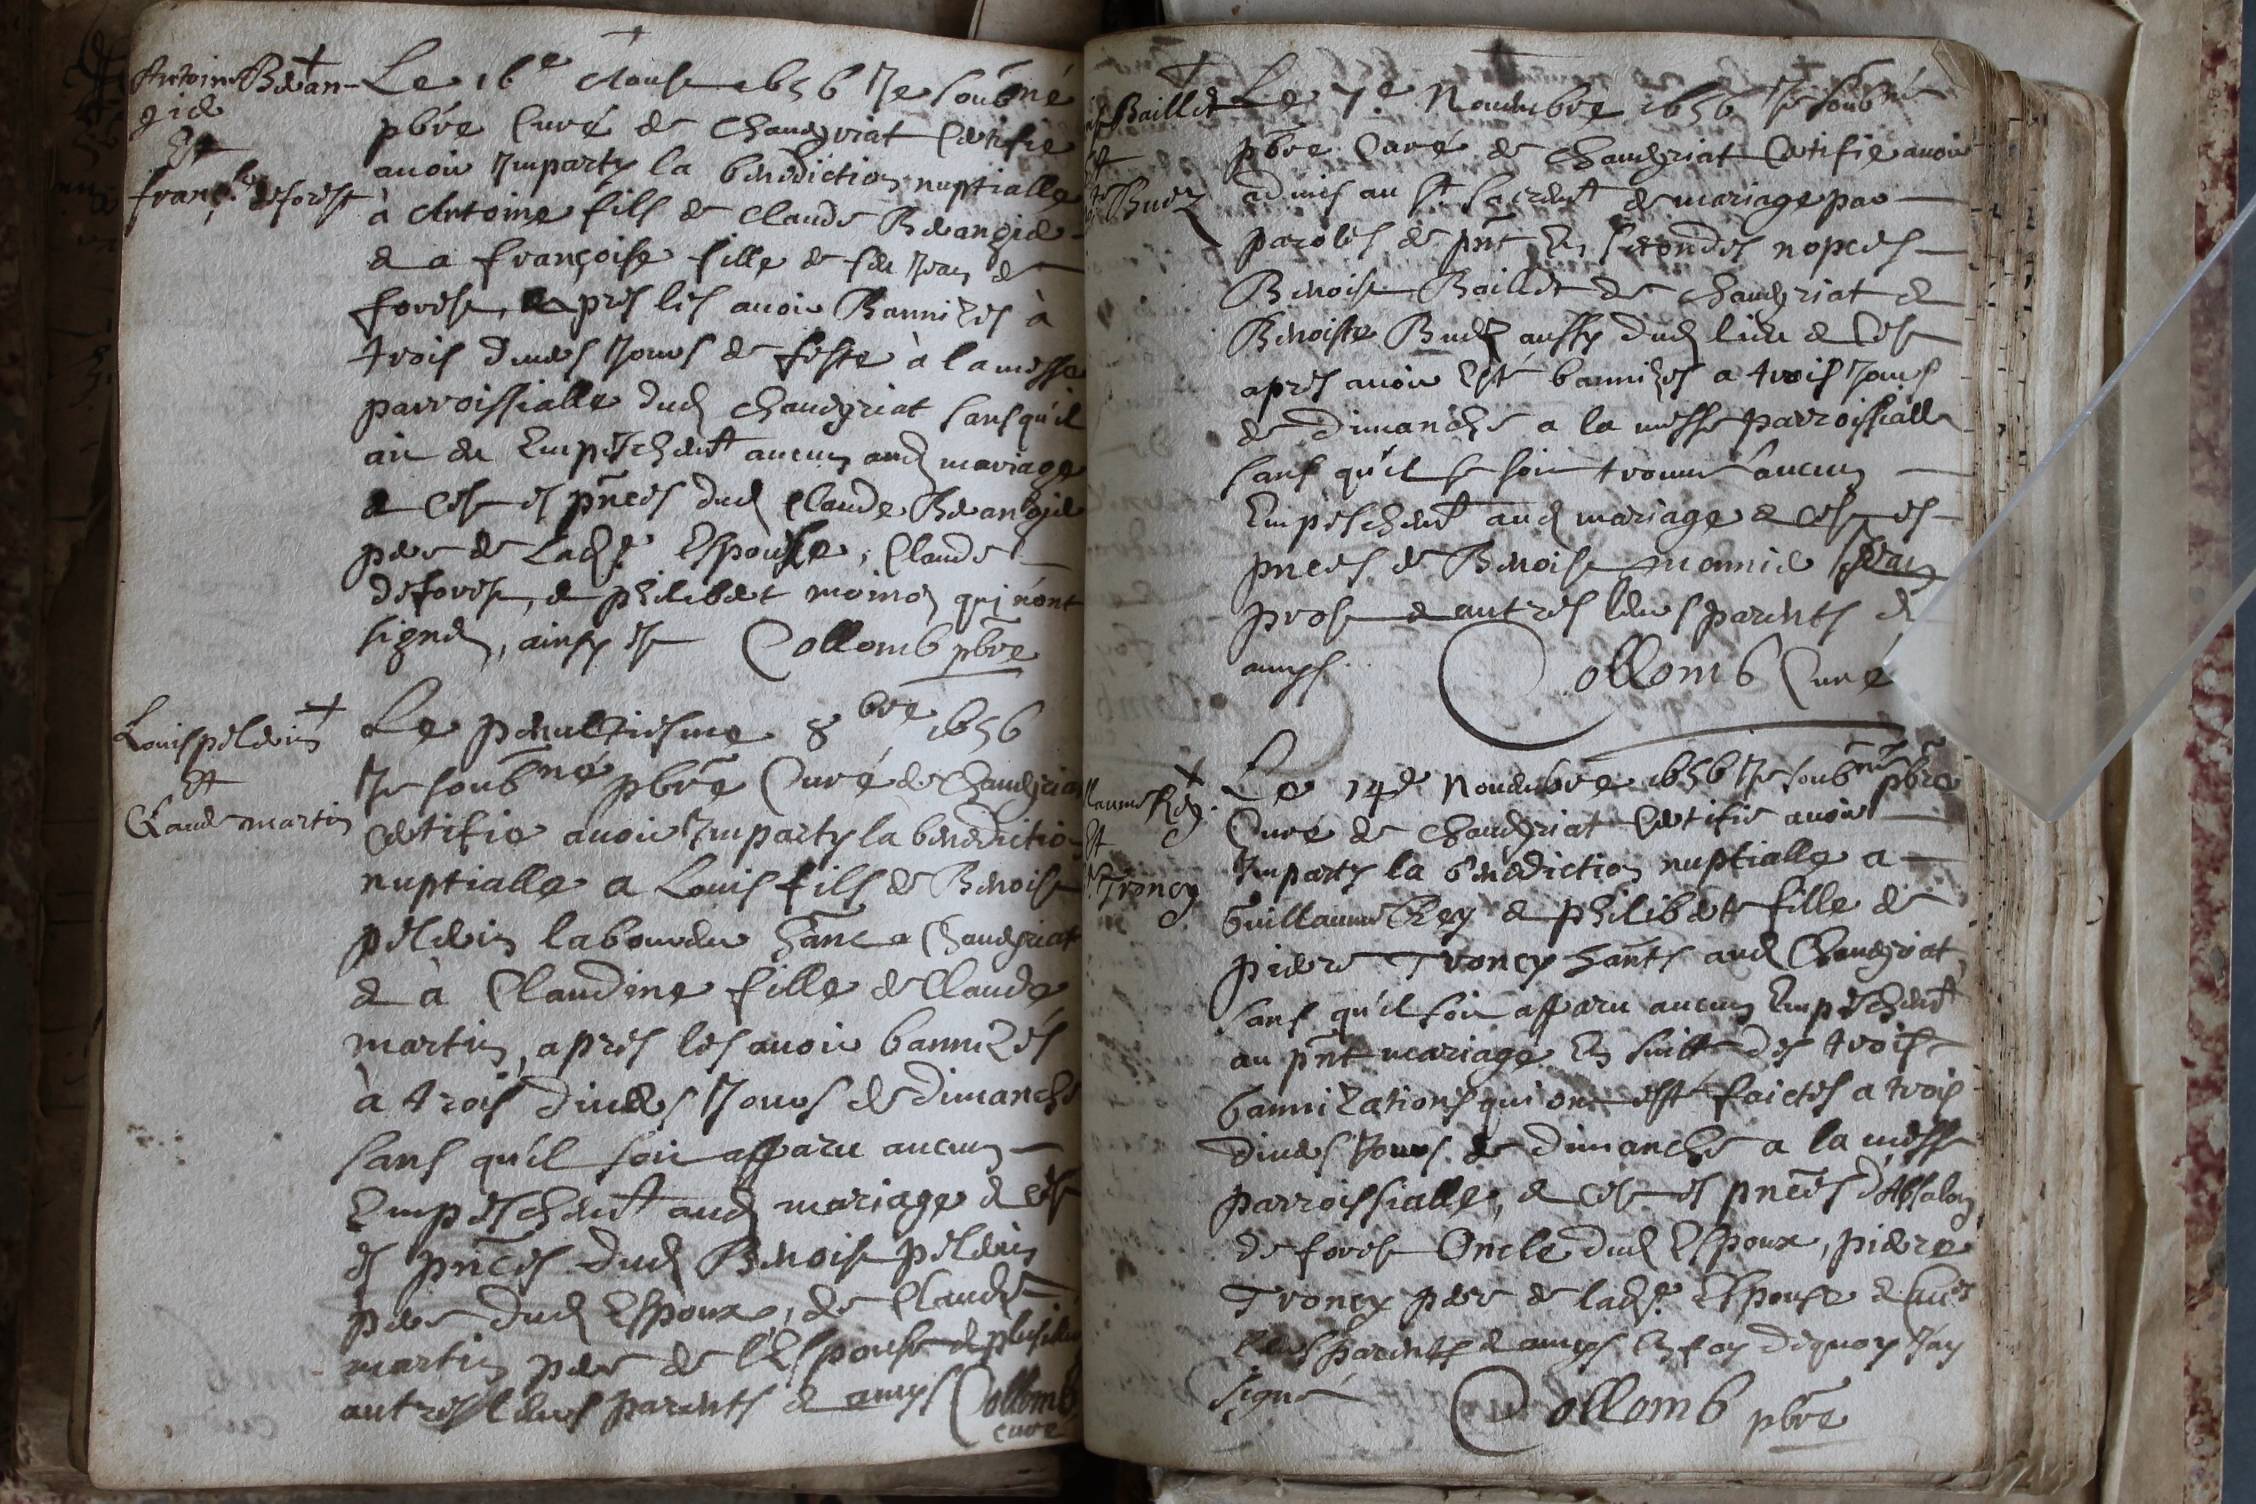 Antoine Beran-
gie
Et
franç.se deforest
Le 16e d'Aoust 1656 Je soubné
pbre Curé de Chaveyriat Certifie
avoir Imparty la benediction nuptialle
à Antoine fils de Claude Berangie
& a françoise fille de feu Jean de
forest, & apres les avoir Bannizes à
trois divers Jours de feste à la messe
parroissialle dud Chaveyriat sans qu'il
aie eu Empeschemt aucun aud mariage
& Cest es pnces dud Claude Berangie
pere de Lad.e Espouse, Claude
deforest, & philibert moinon qui n'ont
signez, ainsy Est Collomb pbre
Louis pelerin
Et
Claude martin
Le penultiesme 8bre 1656
Je soubné pbre Curé de Chaveyriat
Certifie avoir Imparty la benediction
nuptialle a Louis fils de Benoist
pelerin laboureur hant a Chaveyriat
& à Claudine fille de Claude
martin, apres les avoir bannizes
à trois divers Jours de dimanche
sans qu'il soit apparu aucun
Empeschemt aud mariage & Cest
es pnces dud Benoist pelerin
pere dud Espoux, de Claude
martin pere de l'Espouse & plusieurs
autres leurs parents & amys Collomb
Curé
Baillet
Et
Buez
Le 7e Novembre 1656 Je soubné
pbre Curé de Chaveyriat Certifie avoir
admis au St Sacremt de mariage par
paroles de pnt En secondes nopces
Benoist Baillet de Chaveyriat &
Benoiste Buez aussy dud lieu & Cest
apres avoir Esté bannizes a trois Jours
de dimanche a la messe parroissialle
sans qu'il se soit trouvé aucun
Empeschemt aud mariage & Cest es
pnces de Benoist monnie Jean
prost & autres leurs parents &
amys. Collomb Curé
llaume Rey
Et
Troncy
Le 14e Novembre 1656 Je soubné pbre
Curé de Chaveyriat Certifie avoir
Imparty la benediction nuptialle a
Guillaume Rey & philiberte fille de
pierre Troncy hants aud Chaveyriat
sans qu'il soit apparu aucun Empeschemt
au pnt mariage En suitte des trois
bannizations qui ont esté faictes a trois
divers Jours de dimanche a la messe
parroissialle, & Cest es pnces d'Absalon
de forest Oncle dud Espoux, pierre
Troncy pere de lad.e Espouse &
leurs parents & amys En foy dequoy J'ay
signé Collomb pbre